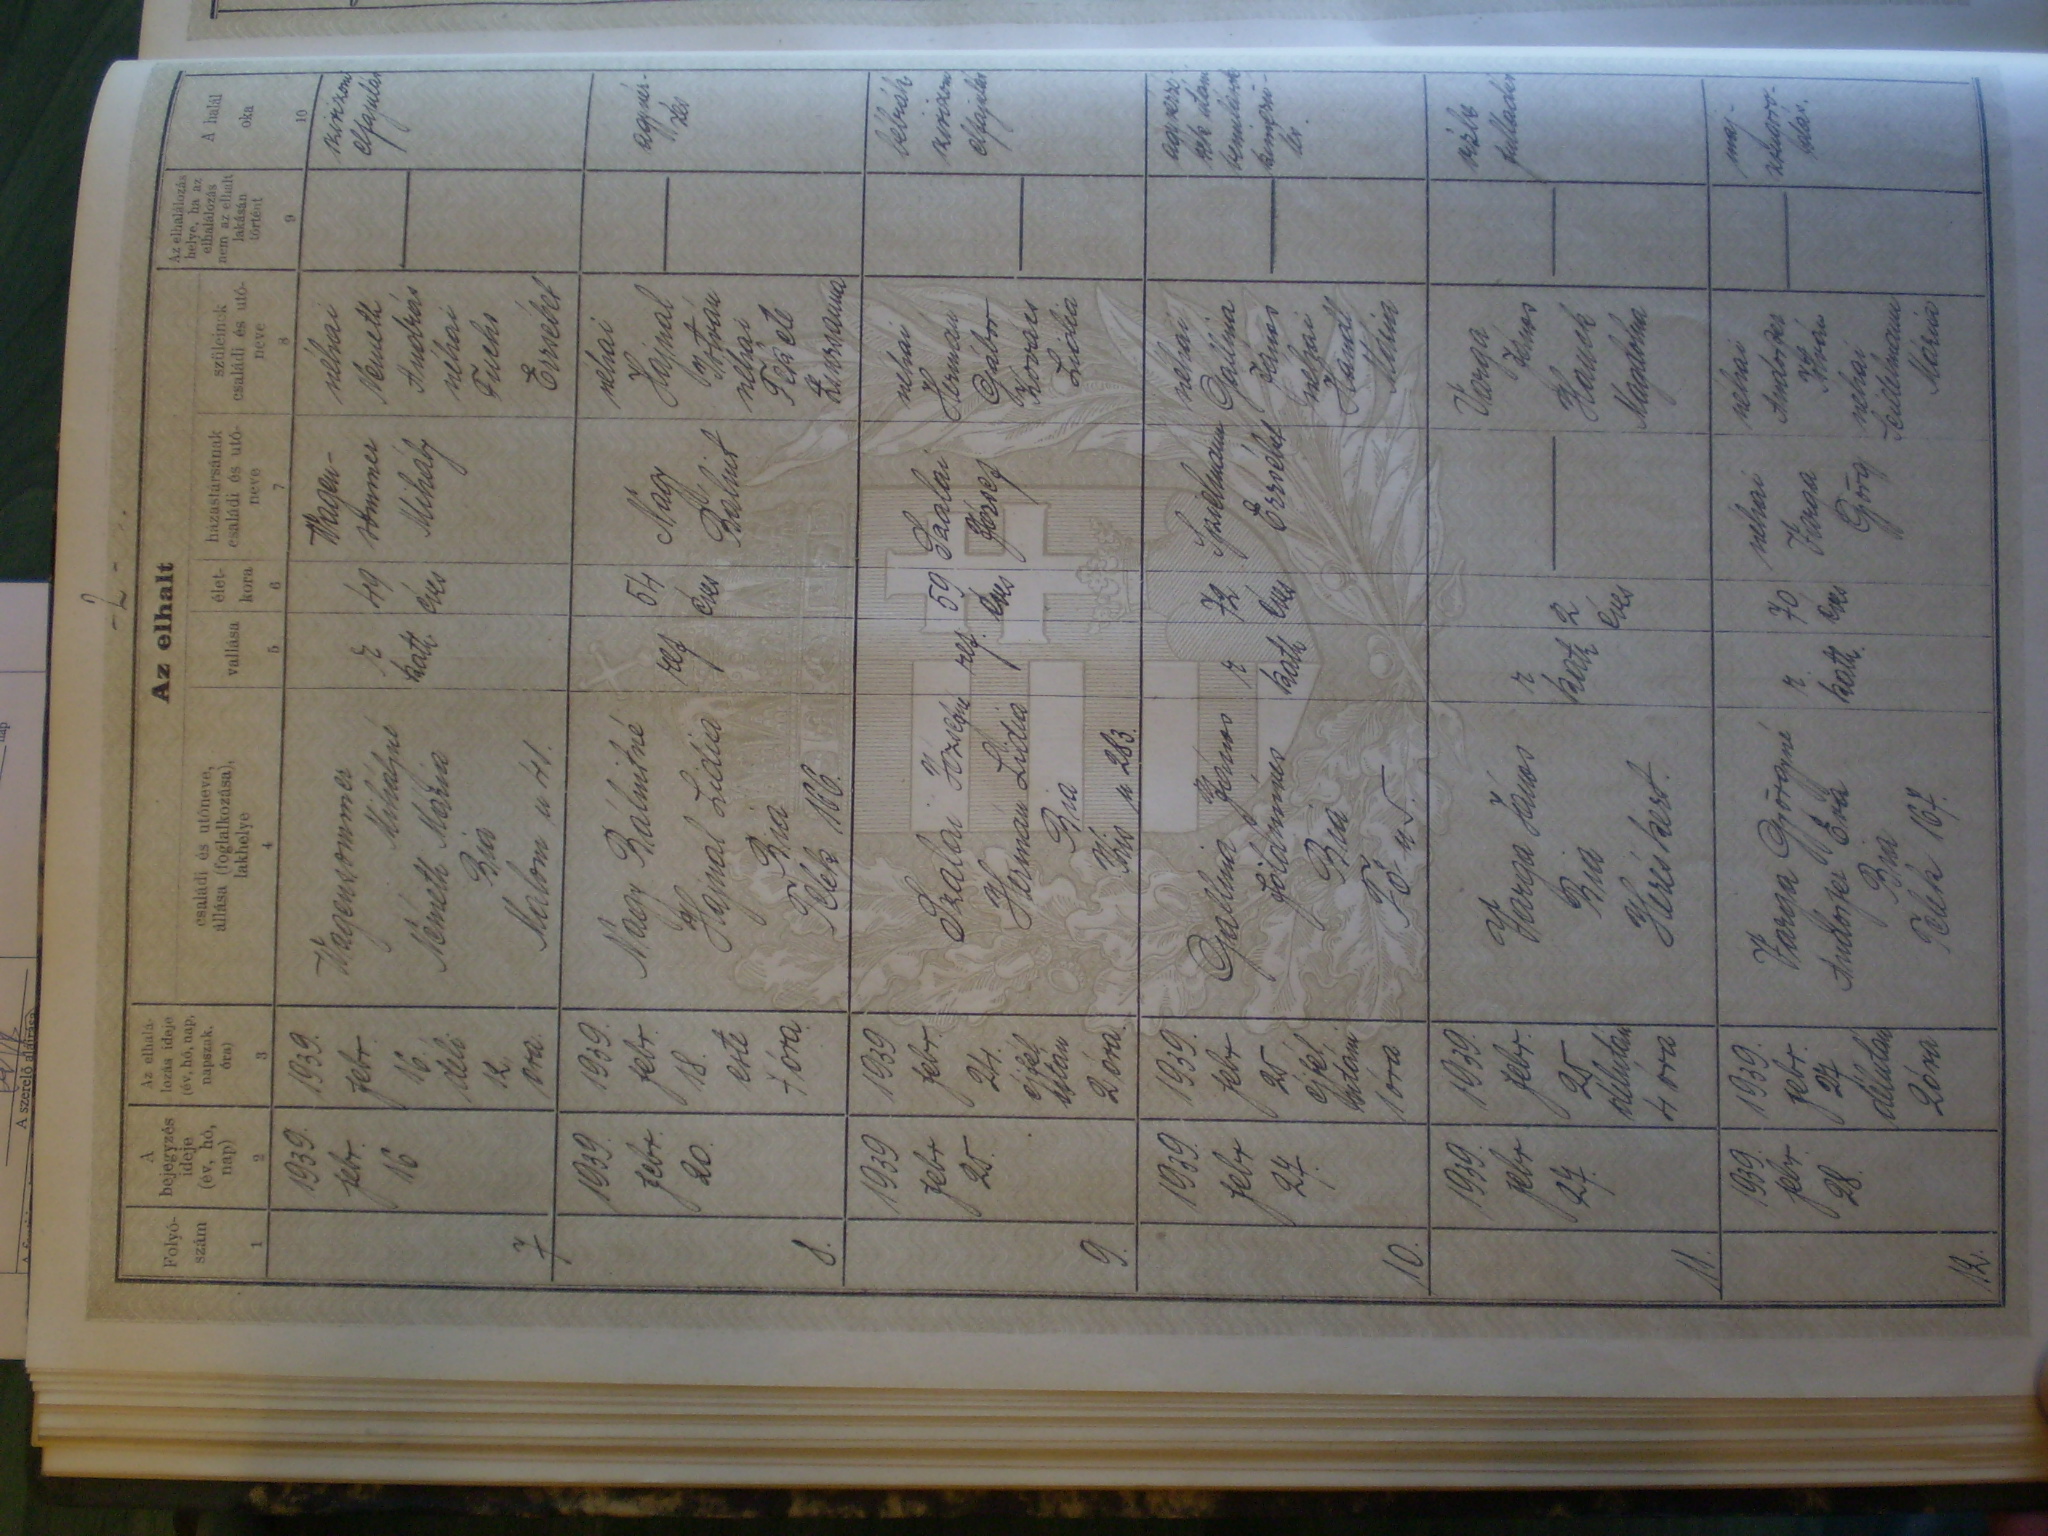 - 2 -
Az elhalt
Folyó-
szám
A
bejegyzés
ideje
(év, hó,
nap)
Az elhalá-
lozás ideje
(év, hó, nap,
napszak,
óra)
családi és utóneve,
állása (foglalkozása),
lakhelye
vallása
élet-
kora
házastársának
családi és utó-
neve
szüleinek
családi és utó-
neve
Az elhalálozás
helye, ha az
elhalálozás
nem az elhalt
lakásán
történt
A halál
oka
1
2
3
4
5
6
7
8
9
10
7
1939.
febr.
16
1939.
febr.
16.
déli
12
óra
Wagensommer
Mihályné
Németh Mária
Bia
Malom u 41.
r
kath.
49
éves
Wagen-
sommer
Mihály
néhai
Németh
András
néhai
Fuchs
Erzsébet
szivizom
elfajulás
8.
1939.
febr.
20.
1939.
febr.
18.
este
7 óra.
Nagy Bálintné
Hajnal Lidia
Bia
Telek 166.
ref
54
éves
Nagy
Bálint
néhai
Hajnal
István
néhai
Fekete
Zsuzsanna
agyvér-
zés
9.
1939
febr
25.
1939
febr.
24.
éjfél
után
2 óra.
Szalai Józsefné
Herman Lidia
Bia
u 283.
ref.
59
éves
Szalai
József
néhai
Herman
Gábor
Kovács
Lidia
szivizom
elfajulás
10.
1939.
febr
27.
1939.
febr
25
éjfél
utáni
1 óra
Galina János
földmives
Bia
Fő u 5.
r
kath
72
éves
Szielmann
Erzsébet
néhai
Galina
János
néhai
Handl
Mária
11.
1939.
febr
27.
1939.
febr.
25
délután
4 óra
Varga János
Bia
r
kath
2
éves
Varga
János
Hauck
Magdolna
vizbe
fulladás
12.
1939.
febr.
28.
1939.
febr.
27
délután
2 óra
Varga Györgyné
Andorfer Éva
Bia
Telek 167.
r.
kath.
70
éves
néhai
Varga
György
néhai
Andorfer
néhai
Teillmann
Mária
máj-
zsugoro-
dás.
A szerelő aláírása
nap